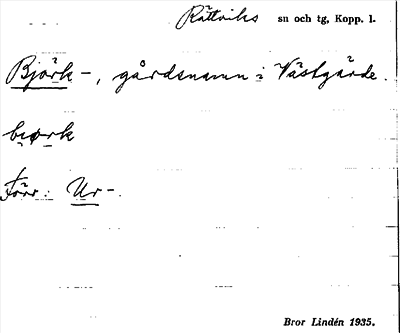 Rättviks sn och tg, Kopp. l.
Björk-, gårdsnamn i Västgärde.
bıørk
Förr: Ur-.
Bror Lindén 1935.